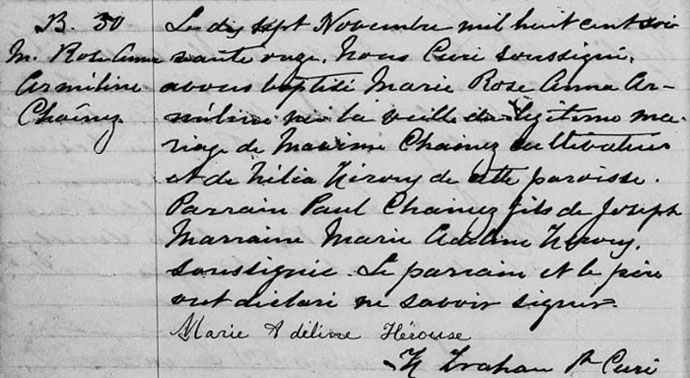 B. 30
M. Rose Anna
Arméline
Chaînez
Le dix sept Novembre mil huit cent soi
xante onze, Nous Curé soussigné,
avons baptisé Marie Rose Anna Ar-
méline née la veille du légitime ma-
riage de Maxime Chainez cultivateur
et de Hérou de cette paroisse.
Parrain Paul Chainez fils de Joseph
Marraine Marie Adeline
soussignée. Le parrain et le père
ont déclaré ne savoir signer.
Marie Adéline Hérouse
Trahan Ptr Curé